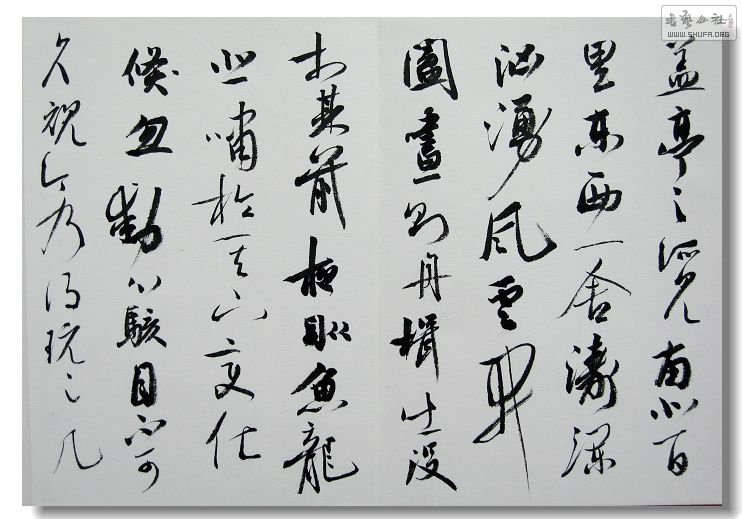 蓋亭之所見南北百
里東西一舍濤瀾
洶湧風雲開
闔晝則舟楫出沒
於其前夜則魚龍
悲嘯於其下變化
倏忽動心駭目不可
久視今乃得玩之几
書藝公社
WWW.SHUFA.ORG